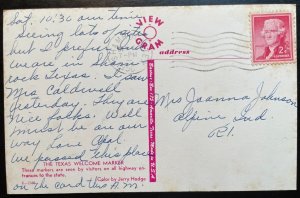 Sat. 10:30 our time
Seeing lots of
but I prefer Ind
we are in Sham
rock Texas. I saw
Mrs Caldwell
yesterday. They are
nice folks. Well
must be on our
way Love Opal
we passed this place
on the card this A.M.
VIEW
GRAM
address
Mrs Joanna Johnson
Alpine Ind
R1.
2¢
THE TEXAS WELCOME MARKER
These markers are seen by visitors on all highway en-
trances to the state.
(Color by Jerry Hadge